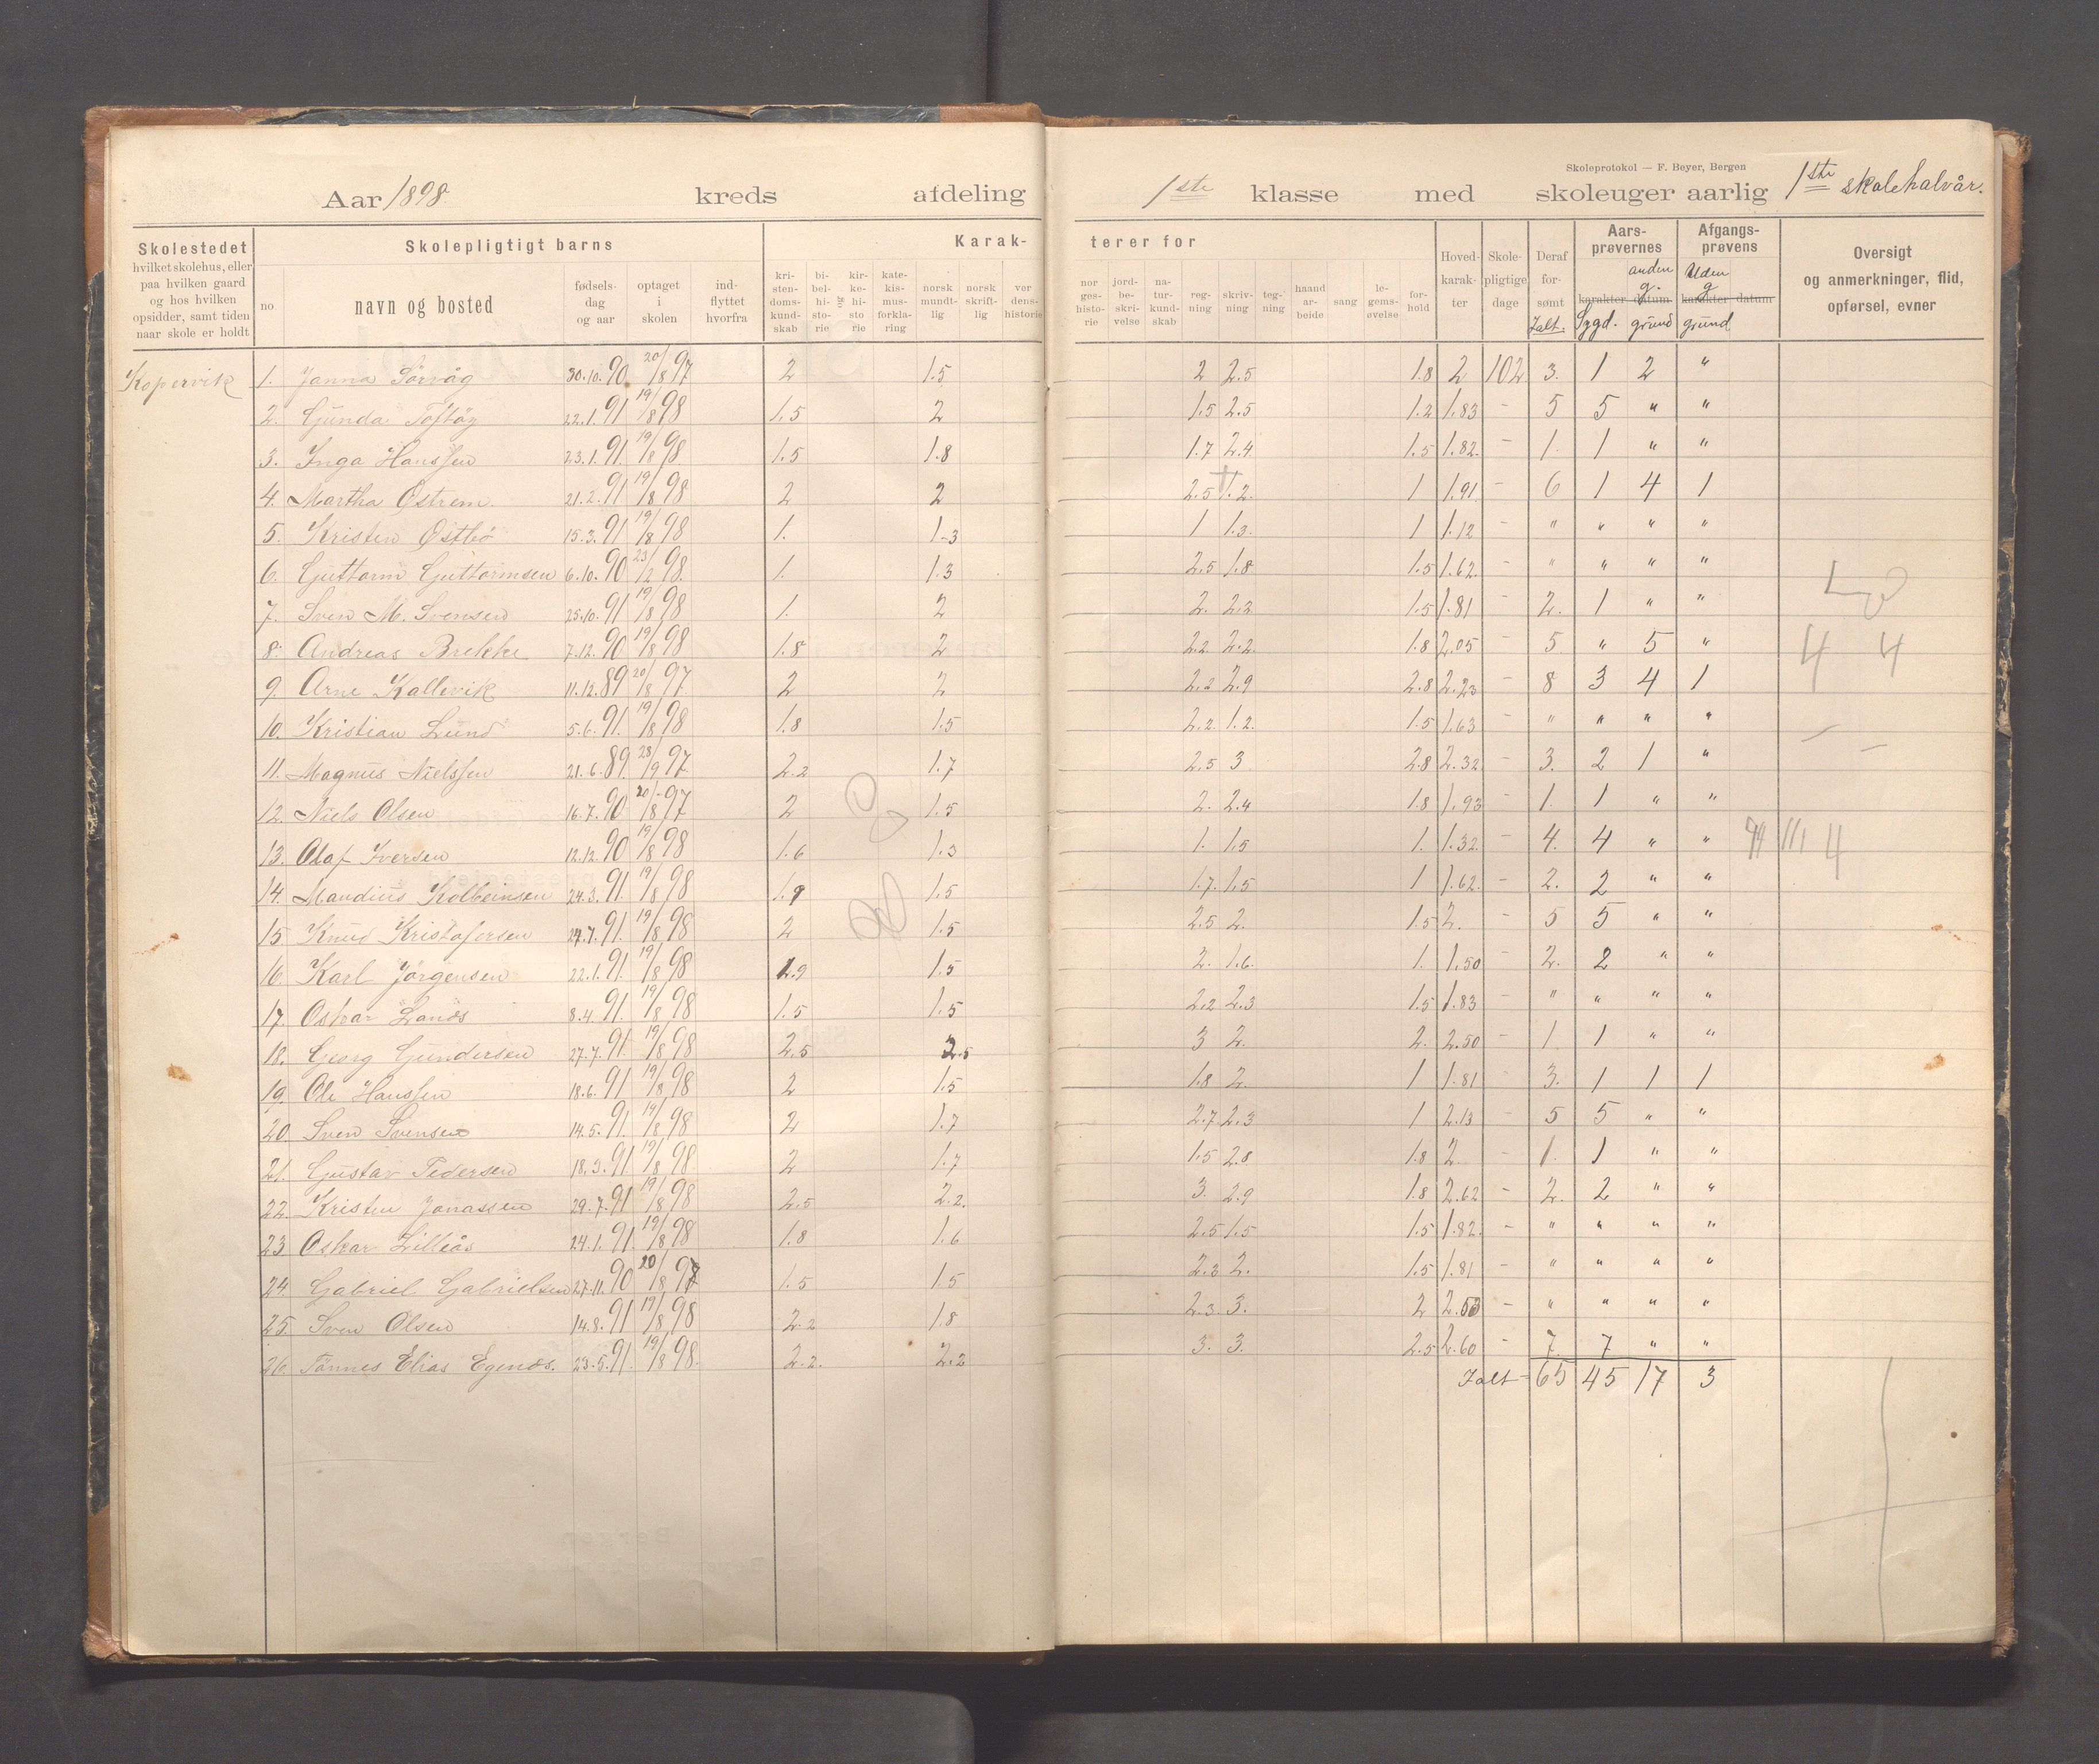 Skoleprotokol — F. Beyer, Bergen
Aar 1898 kreds afdeling 1ste klasse med skoleuger aarlig 1ste skolehalvår.
Skolestedet hvilket skolehus, eller paa hvilken gaard og hos hvilken opsidder, samt tiden naar skole er holdt
Skolepligtigt barns
no navn og bosted fødsels-dag og aar optaget i skolen ind-flyttet hvorfra
Karak-terer for
kri-sten-doms-kund-skab bi-bel-hi-sto-rie kir-ke-hi-sto rie og kate-kis-mus-forkla-ring norsk mundt-lig norsk skrift-lig ver dens-historie
nor ges-histo-rie jord-be-skri-velse na-tur-kund-skab reg-ning skriv-ning teg-ning haand ar-beide sang le-gems-øvelse for-hold
Hoved-karak-ter Skole-pligtige dage Deraf for-sømt Ialt. Aars-prøvernes karakter datum Sygd. anden g. grund Afgangs-prøvens karakter datum Uden g grund
Oversigt og anmerkninger, flid, opførsel, evner
Kopervik 1. Janna Sørvåg 30.10.90 20/8 97 2 1.5 2 2.5 1.8 2 102 3. 1 2 "
2. Gunda Toftøy 22.1.91 19/8 98 1.5 2 1.5 2.5 1.2 1.83 - 5 5 " "
3. Inga Hanssen 23.1.91 19/8 98 1.5 1.8 1.7 2.4 1.5 1.82 - 1. 1 " "
4. Martha Østrem 21.2.91 19/8 98 2 2 2.5 1.2. 1 1.91 - 6 1 4 1
5. Kristen Østbø 15.3.91 19/8 98 1. 1.3 1 1.3. 1 1.12 - " " " "
6. Guttorm Guttormsen 6.10.90 23/2 98 1. 1.3 2.5 1.8 1.5 1.62 - " " " "
7. Sven M. Svensen 25.10.91 19/8 98 1. 2 2. 2.2 1.5 1.81 - 2. 1 " "
8. Andreas Brekke 7.12.90 19/8 98 1.8 2 2.2 2.2 1.8 2.05 - 5 " 5 " 4 4
9. Arne Kallevik 11.12.89 20/8 97 2 2 2.2 2.9 2.8 2.23 - 8 3 4 1
10. Kristian Lund 5.6.91 19/8 98 1.8 1.5 2.2 1.2. 1.5 1.63 - " " " "
11. Magnus Nielssen 21.6.89 28/9 97 2.2 1.7 2.5 3 2.8 2.32 - 3. 2 1 "
12. Niels Olsen 16.7.90 20/8 97 2 1.5 2. 2.4 1.8 1.93 - 1. 1 " "
13. Olaf Iversen 12.12.90 19/8 98 1.6 1.3 1. 1.5 1. 1.32 - 4. 4 " "
14. Mandius Kolbeinsen 24.3.91 19/8 98 1.9 1.5 1.7. 1.5 1 1.62 - 2. 2 " "
15 Knud Kristofersen 24.7.91 19/8 98 2 1.5 2.5 2. 1.5 2. - 5 5 " "
16. Karl Jörgensen 22.1.91 19/8 98 1.9 1.5 2. 1.6. 1. 1.50 - 2. 2 " "
17. Oskar Lands 8.4.91 19/8 98 1.5 1.5 2.2 2.3 1.5 1.83 - " " " "
18. Georg Gundersen 27.7.91 19/8 98 2.5 2.5 3 2. 2. 2.50 - 1. 1 " "
19. Ole Hanssen 18.6.91 19/8 98 2 1.5 1.8 2. 1 1.81 - 3. 1 1 1
20. Sven Svensen 14.5.91 19/8 98 2 1.7 2.7 2.3 1 2.13 - 5 5 " "
21. Gustav Pedersen 18.3.91 19/8 98 2 1.7 1.5 2.8 1.8 2 - 1. 1 " "
22. Kristen Jonassen 29.7.91 19/8 98 2.5 2.2. 3. 2.9 1.8 2.62 - 2. 2 " "
23. Oskar Lilleås 24.1.91 19/8 98 1.8 1.6 2.5 1.5 1.5 1.82 - " " " "
24. Gabriel Gabrielsen 27.11.90 20/8 97 1.5 1.5 2.3 2. 1.5 1.81 - " " " "
25. Sven Olsen 14.8.91 19/8 98 2.2 1.8 2.3. 3. 2 2.03 - " " " "
26. Tönnes Elias Egenæs. 23.5.91 19/8 98 2.2. 2.2 3. 3. 2.5 2.60 - 7. 7 " "
Ialt - 65 45 17 3